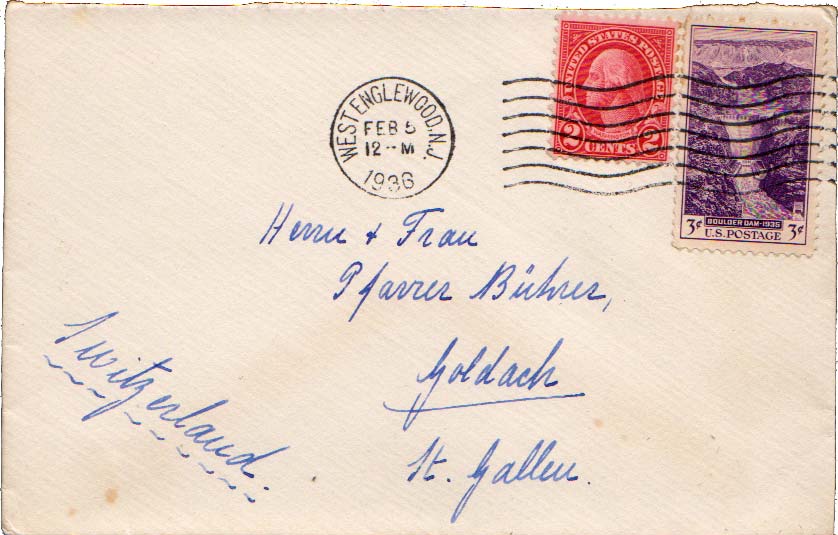 UNITED STATES POSTAGE
2 CENTS 2
BOULDER DAM-1935
3¢ U.S. POSTAGE 3¢
WEST ENGLEWOOD, N.J.
FEB 5
12-M
1936
Herrn + Frau
Pfarrer Bührer,
Goldach
St. Gallen.
Switzerland.